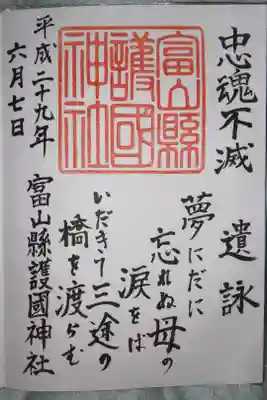 忠魂不滅
遺詠
夢にだに
忘れぬ母の
涙をば
いだきて三途の
橋を渡らむ
富山縣
護國
神社
富山縣護國神社
平成二十九年
六月七日